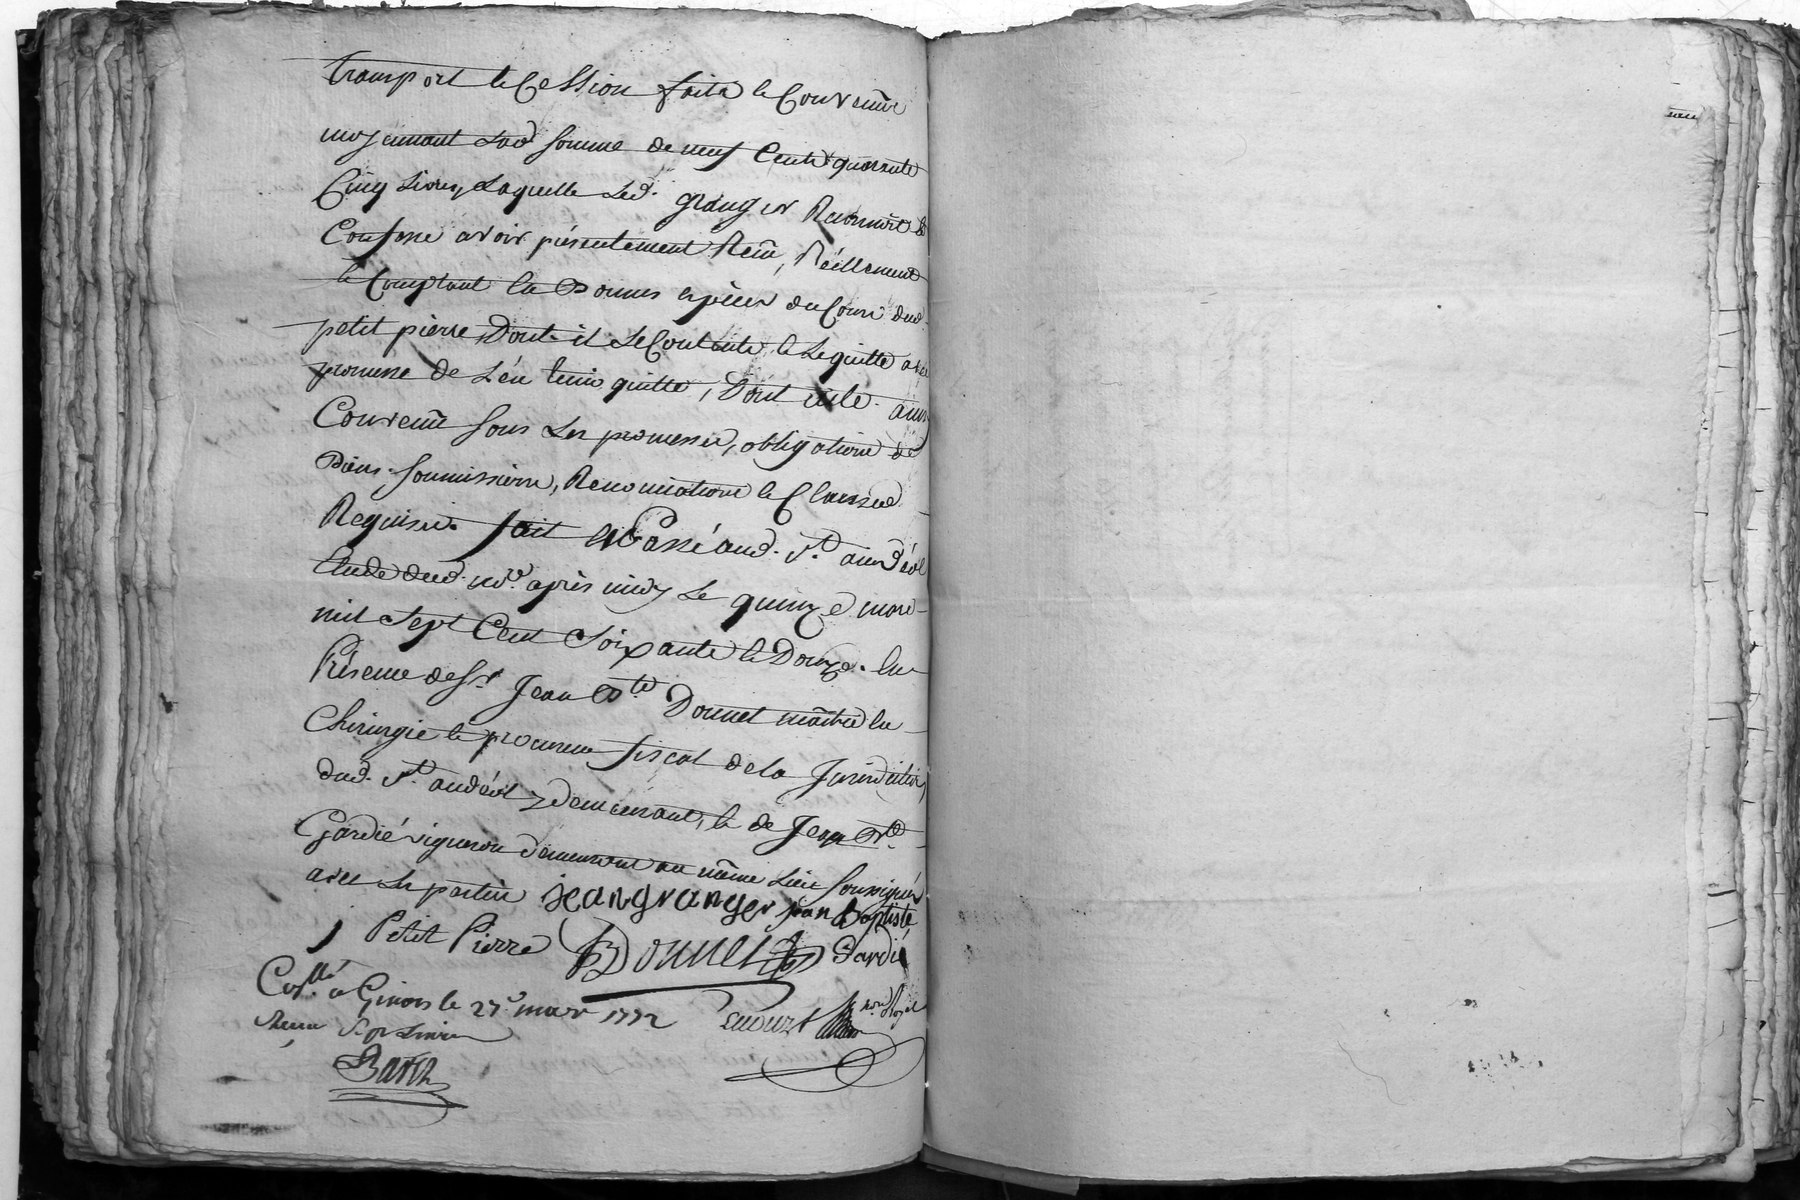 transport et Cession faite et Convenüe
moyennant lad. somme de neuf Cents quarante
Cinq livres laquelle led. granger Reconnoit et
Confesse avoir présentement Reçu, Réellement
et Comptant en Bonnes espèces du Cours dud.
petit pierre, Dont il se Contente et le quitte avec
promesse de l'en tenir quitte, Dont acte. ainsy
Convenu sous les promesses, obligations de
Biens. soumissions, Renonciations et Clauses
Requises. fait et Passé aud. St. andéol
étude dud. nore. après midy le quinze mars
mil sept Cent soixante et Douze. en
Présence de sr. Jean Bte. Donnet maître en
Chirurgie et procureur fiscal de la Jurisdiction
dud. St. andéol y demeurant, et de Jean Bte.
Gardié vigneron demeurant au même lieu soussignés
avec les parties jean granger jean Baptiste
Petit Pierre Donnet Gardié
Collé. à Givors le 27e. mars 1772 nore. Royal
Barth